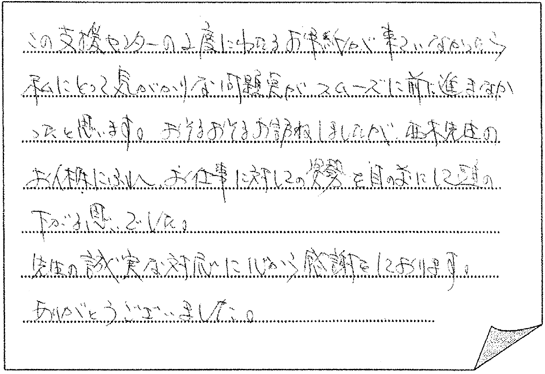 この支援センターの2度にわたるお手紙が来ていなかったら
私にとって気がかりな問題実がスムーズに前に進まなか
ったと思います。おそるおそるお訪ねしましたが、西木先生の
お人柄にふれ、お仕事に対しての姿勢を目の前にして頭の
下がる思いでした。
先生の誠実な対応に心から感謝をしております。
ありがとうございました。